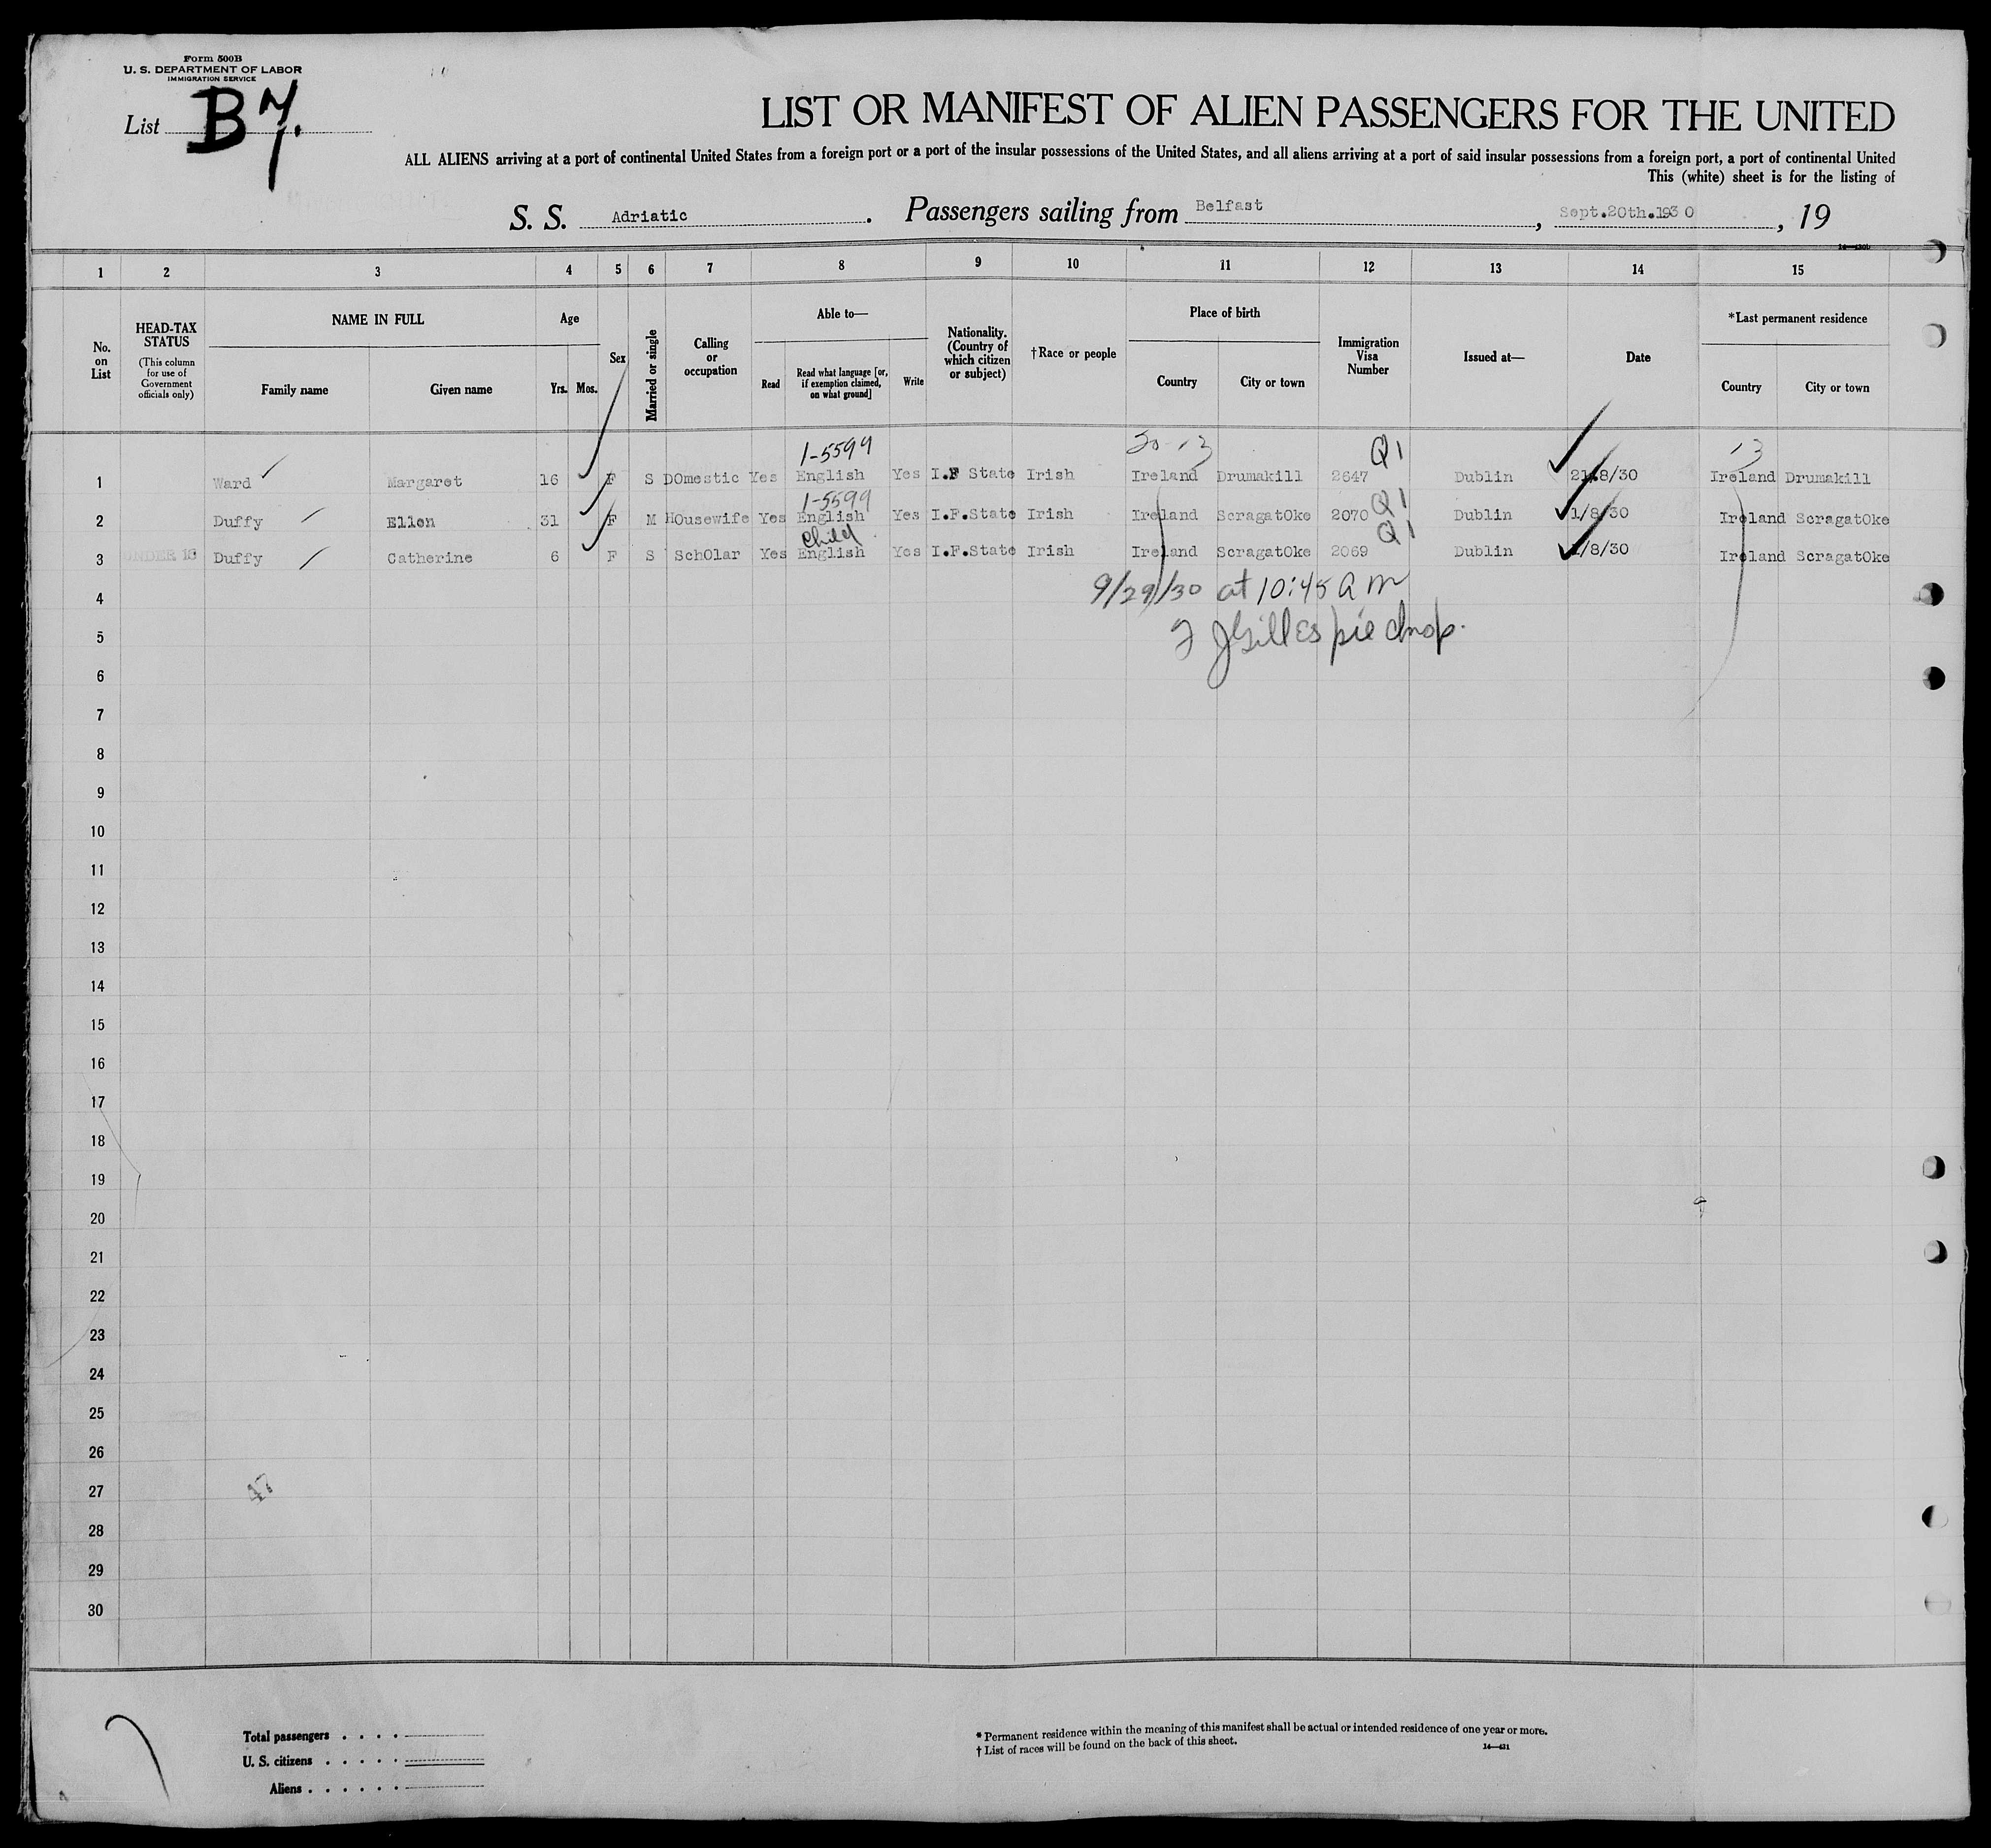 Form 500B
U. S. DEPARTMENT OF LABOR
IMMIGRATION SERVICE
List B7.
LIST OR MANIFEST OF ALIEN PASSENGERS FOR THE UNITED
ALL ALIENS arriving at a port of continental United States from a foreign port or a port of the insular possessions of the United States, and all aliens arriving at a port of said insular possessions from a foreign port, a port of continental United
This (white) sheet is for the listing of
S. S. Adriatic . Passengers sailing from Belfast , Sept.20th.1930 , 19
1 2 3 4 5 6 7 8 9 10 11 12 13 14 15
No. on List
HEAD-TAX STATUS
(This column for use of Government officials only)
NAME IN FULL
Family name Given name
Age
Yrs. Mos.
Sex
Married or single
Calling or occupation
Able to—
Read
Read what language [or, if exemption claimed, on what ground]
Write
Nationality. (Country of which citizen or subject)
†Race or people
Place of birth
Country City or town
Immigration Visa Number
Issued at—
Date
*Last permanent residence
Country City or town
1-5599 20-13 Q1 13
1 Ward Margaret 16 F S DOmestic Yes English Yes I.F State Irish Ireland Drumakill 2647 Dublin 21.8/30 Ireland Drumakill
1-5599 Q1
2 Duffy Ellen 31 F M HOusewife Yes English Yes I.F.State Irish Ireland ScragatOke 2070 Dublin 1/8/30 Ireland ScragatOke
Child Q1
3 UNDER 16 Duffy Catherine 6 F S SchOlar Yes English Yes I.F.State Irish Ireland ScragatOke 2069 Dublin 1/8/30 Ireland ScragatOke
4 9/29/30 at 10:45 a m
5 J Gillespie
6
7
8
9
10
11
12
13
14
15
16
17
18
19
20
21
22
23
24
25
26
27 47
28
29
30
Total passengers . . . .
U. S. citizens . . . . .
Aliens . . . . . .
* Permanent residence within the meaning of this manifest shall be actual or intended residence of one year or more.
† List of races will be found on the back of this sheet.
14—431